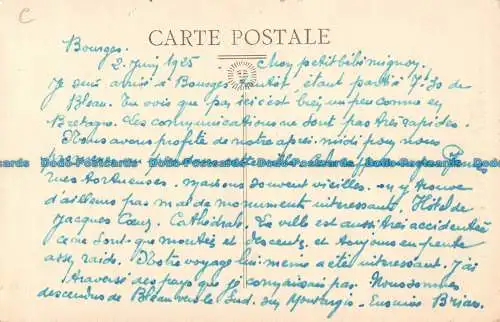 C
CARTE POSTALE
Bourges.
2 Juin 1925 Mon petit bébé mignon,
Je suis arrivé à Bourges, étant parti à 7h30 de
Bléau. Tu vois que par ici c'est bien un peu comme en
Bretagne. Les communications ne sont pas très rapides.
Nous avons profité de notre après-midi pour nous
rues tortueuses, maisons souvent vieilles. On y trouve
d'ailleurs pas mal de monuments intéressants. Hôtel de
Jacques Coeur, Cathédrale. La ville est aussi très accidentée
ce ne sont que montées et descentes, et toujours en pente
assez raide. Notre voyage lui même a été intéressant. J'ai
traversé des pays que je ne connaissais pas. Nous sommes
descendus de Bléau vers le Sud, Montargis. Ensuite Briare